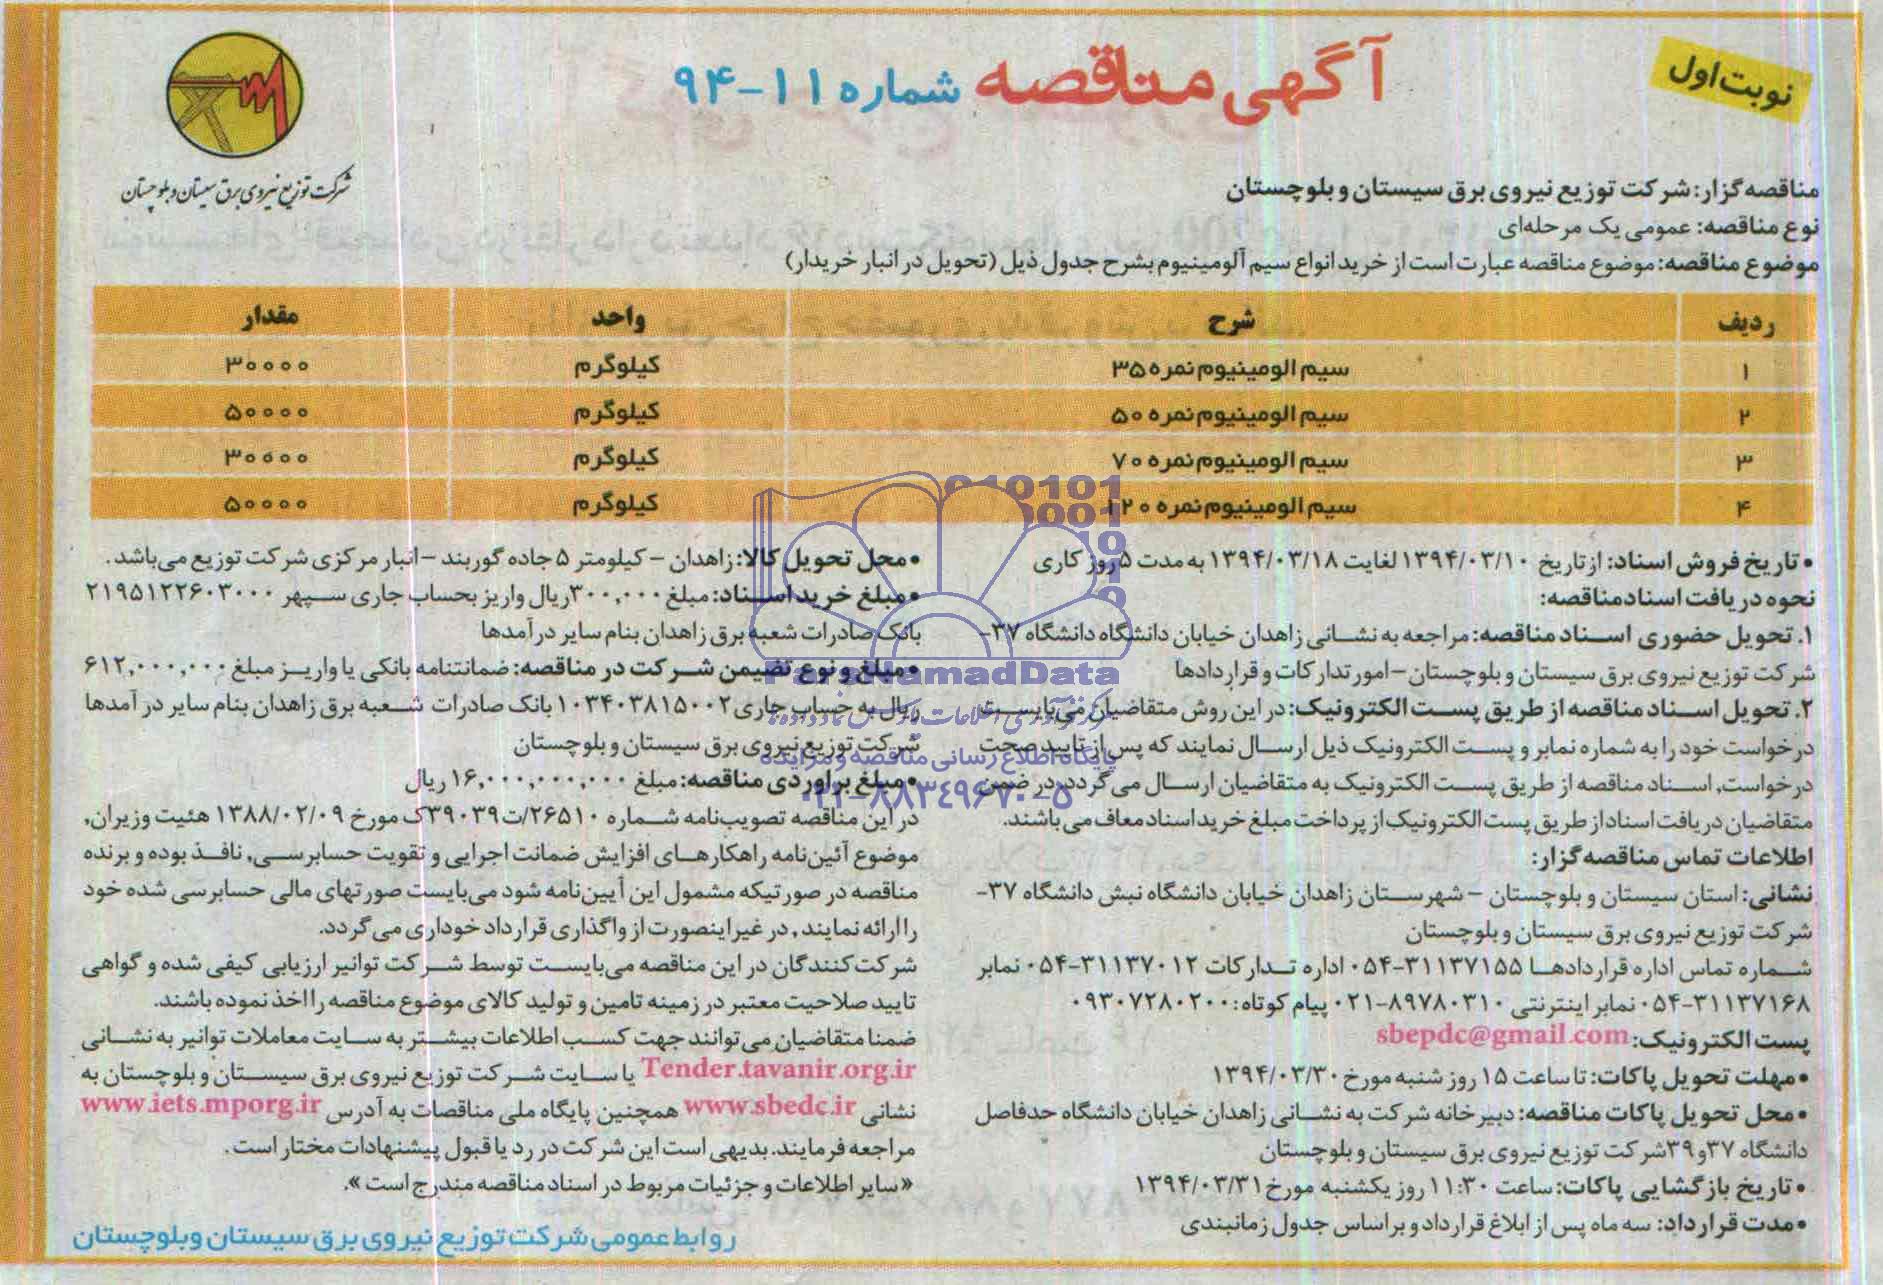 نوبت اول
آگهی مناقصه شماره ۱۱-۹۴
شرکت توزیع نیروی برق سیستان و بلوچستان
مناقصه گزار: شرکت توزیع نیروی برق سیستان و بلوچستان
نوع مناقصه: عمومی یک مرحله‌ای
موضوع مناقصه: موضوع مناقصه عبارت است از خرید انواع سیم آلومینیوم بشرح جدول ذیل (تحویل در انبار خریدار)
ردیف شرح واحد مقدار
۱ سیم الومینیوم نمره ۳۵ کیلوگرم ۳۰۰۰۰
۲ سیم الومینیوم نمره ۵۰ کیلوگرم ۵۰۰۰۰
۳ سیم الومینیوم نمره ۷۰ کیلوگرم ۳۰۰۰۰
۴ سیم الومینیوم نمره ۱۲۰ کیلوگرم ۵۰۰۰۰
• تاریخ فروش اسناد: از تاریخ ۱۳۹۴/۰۳/۱۰ لغایت ۱۳۹۴/۰۳/۱۸ به مدت ۵ روز کاری
نحوه دریافت اسناد مناقصه:
۱. تحویل حضوری اسناد مناقصه: مراجعه به نشانی زاهدان خیابان دانشگاه دانشگاه ۳۷-
شرکت توزیع نیروی برق سیستان و بلوچستان- امور تدارکات و قراردادها
۲. تحویل اسناد مناقصه از طریق پست الکترونیک: در این روش متقاضیان می‌بایست
درخواست خود را به شماره نمابر و پست الکترونیک ذیل ارسال نمایند که پس از تایید صحت
درخواست، اسناد مناقصه از طریق پست الکترونیک به متقاضیان ارسال می‌گردد، در ضمن
متقاضیان دریافت اسناد از طریق پست الکترونیک از پرداخت مبلغ خرید اسناد معاف می‌باشند.
اطلاعات تماس مناقصه گزار:
نشانی: استان سیستان و بلوچستان - شهرستان زاهدان خیابان دانشگاه نبش دانشگاه ۳۷-
شرکت توزیع نیروی برق سیستان و بلوچستان
شماره تماس اداره قراردادها ۳۱۱۳۷۱۵۵-۰۵۴ اداره تدارکات ۳۱۱۳۷۰۱۲-۰۵۴ نمابر
۳۱۱۳۷۱۶۸-۰۵۴ نمابر اینترنتی ۸۹۷۸۰۳۱۰-۰۲۱ پیام کوتاه: ۰۹۳۰۷۲۸۰۲۰۰
پست الکترونیک: sbepdc@gmail.com
• مهلت تحویل پاکات: تا ساعت ۱۵ روز شنبه مورخ ۱۳۹۴/۰۳/۳۰
• محل تحویل پاکات مناقصه: دبیرخانه شرکت به نشانی زاهدان خیابان دانشگاه حدفاصل
دانشگاه ۳۷ و ۳۹ شرکت توزیع نیروی برق سیستان و بلوچستان
• تاریخ بازگشایی پاکات: ساعت ۱۱:۳۰ روز یکشنبه مورخ ۱۳۹۴/۰۳/۳۱
• مدت قرارداد: سه ماه پس از ابلاغ قرارداد و براساس جدول زمانبندی
• محل تحویل کالا: زاهدان - کیلومتر ۵ جاده گوربند - انبار مرکزی شرکت توزیع می‌باشد.
• مبلغ خرید اسناد: مبلغ ۳۰۰,۰۰۰ ریال واریز بحساب جاری سپهر ۲۱۹۵۱۲۲۶۰۳۰۰۰
بانک صادرات شعبه برق زاهدان بنام سایر درآمدها
• مبلغ و نوع تضیمن شرکت در مناقصه: ضمانتنامه بانکی یا واریز مبلغ ۶۱۲,۰۰۰,۰۰۰
ریال به حساب جاری ۱۰۳۴۰۳۸۱۵۰۰۲ بانک صادرات شعبه برق زاهدان بنام سایر درآمدها
شرکت توزیع نیروی برق سیستان و بلوچستان
• مبلغ براوردی مناقصه: مبلغ ۱۶,۰۰۰,۰۰۰,۰۰۰ ریال
در این مناقصه تصویب‌نامه شماره ۲۶۵۱۰/ت۳۹۰۳۹ک مورخ ۱۳۸۸/۰۲/۰۹ هئیت وزیران،
موضوع آئین‌نامه راهکارهای افزایش ضمانت اجرایی و تقویت حسابرسی، نافذ بوده و برنده
مناقصه در صورتیکه مشمول این آیین‌نامه شود می‌بایست صورتهای مالی حسابرسی شده خود
را ارائه نمایند، در غیر اینصورت از واگذاری قرارداد خوداری می‌گردد.
شرکت کنندگان در این مناقصه می‌بایست توسط شرکت توانیر ارزیابی کیفی شده و گواهی
تایید صلاحیت معتبر در زمینه تامین و تولید کالای موضوع مناقصه را اخذ نموده باشند.
ضمنا متقاضیان می‌توانند جهت کسب اطلاعات بیشتر به سایت معاملات توانیر به نشانی
Tender.tavanir.org.ir یا سایت شرکت توزیع نیروی برق سیستان و بلوچستان به
نشانی www.sbedc.ir همچنین پایگاه ملی مناقصات به آدرس www.iets.mporg.ir
مراجعه فرمایند. بدیهی است این شرکت در رد یا قبول پیشنهادات مختار است.
«سایر اطلاعات و جزئیات مربوط در اسناد مناقصه مندرج است».
روابط عمومی شرکت توزیع نیروی برق سیستان وبلوچستان
ParsNamadData
پایگاه اطلاع رسانی مناقصه و مزایده
۰۲۱-۸۸۳۴۹۶۷۰-۵